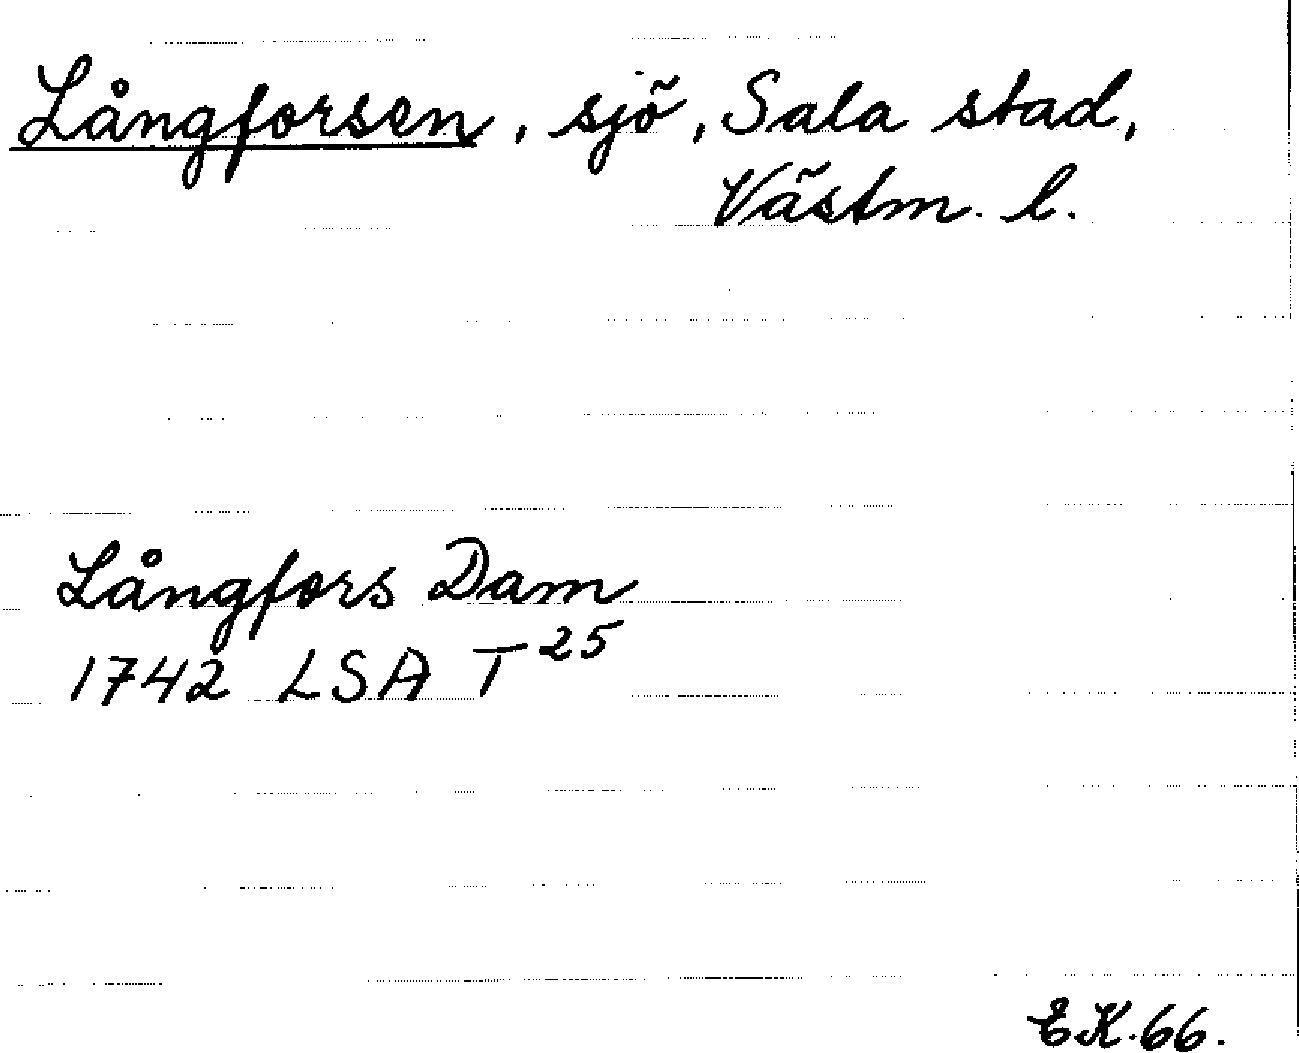 Långforsen, sjö, Sala stad,
Västm. l.
Långfors Dam
1742 LSA T 25
E.K. 66.